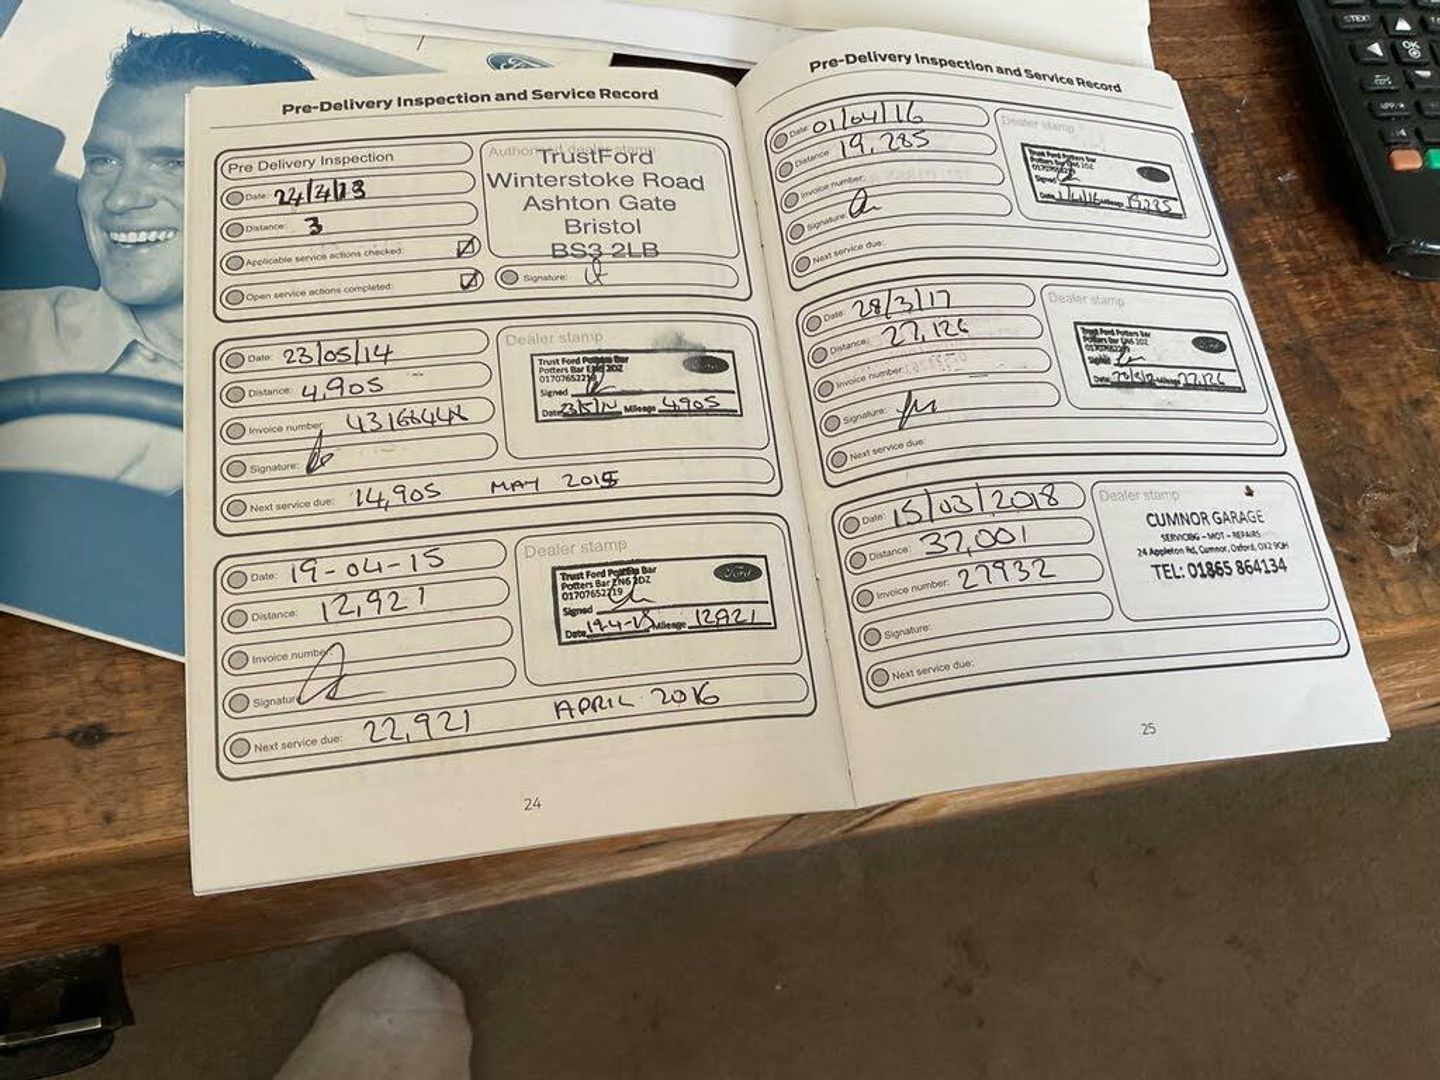 Ford
Pre-Delivery Inspection and Service Record
Pre Delivery Inspection
Date: 24/4/13
Distance: 3
Applicable service actions checked:
Open service actions completed:
Authorised dealer stamp
TrustFord
Winterstoke Road
Ashton Gate
Bristol
BS3 2LB
Signature:
Date: 23/05/14
Distance: 4,905
Invoice number:
Signature:
Next service due: 14,905 MAY 2015
Dealer stamp
Trust Ford Potters Bar
Potters Bar EN6 2DZ
01707652219
Signed
Date 23/5/14 Mileage 4905
Date: 19-04-15
Distance: 12,921
Invoice number:
Signature:
Next service due: 22,921 APRIL 2016
Dealer stamp
Trust Ford Potters Bar
Potters Bar EN6 2DZ
01707652219
Signed
Date 19-4-15 Mileage 12921
24
Pre-Delivery Inspection and Service Record
Date: 01/04/16
Distance: 19,285
Invoice number:
Signature:
Next service due:
Dealer stamp
Trust Ford Potters Bar
Potters Bar EN6 2DZ
Signed
Date 1/4/16 Mileage
Date: 28/3/17
Distance: 27,126
Invoice number:
Signature:
Next service due:
Dealer stamp
Trust Ford Potters Bar
Potters Bar EN6 2DZ
Signed
Date Mileage 27,126
Date: 15/03/2018
Distance: 37,001
Invoice number: 27932
Signature:
Next service due:
Dealer stamp
CUMNOR GARAGE
SERVICING – MOT – REPAIRS
24 Appleton Rd, Cumnor, Oxford, OX2 9QH
TEL: 01865 864134
25
OK